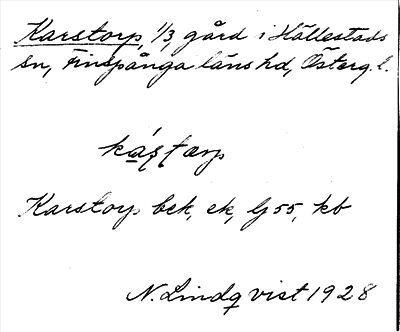 Karstorp, 1/3, gård i Hällestads
sn, Finspånga läns hd, Österg. l.
Karstorp bek, ek, Gj 55, kb
N. Lindqvist 1928